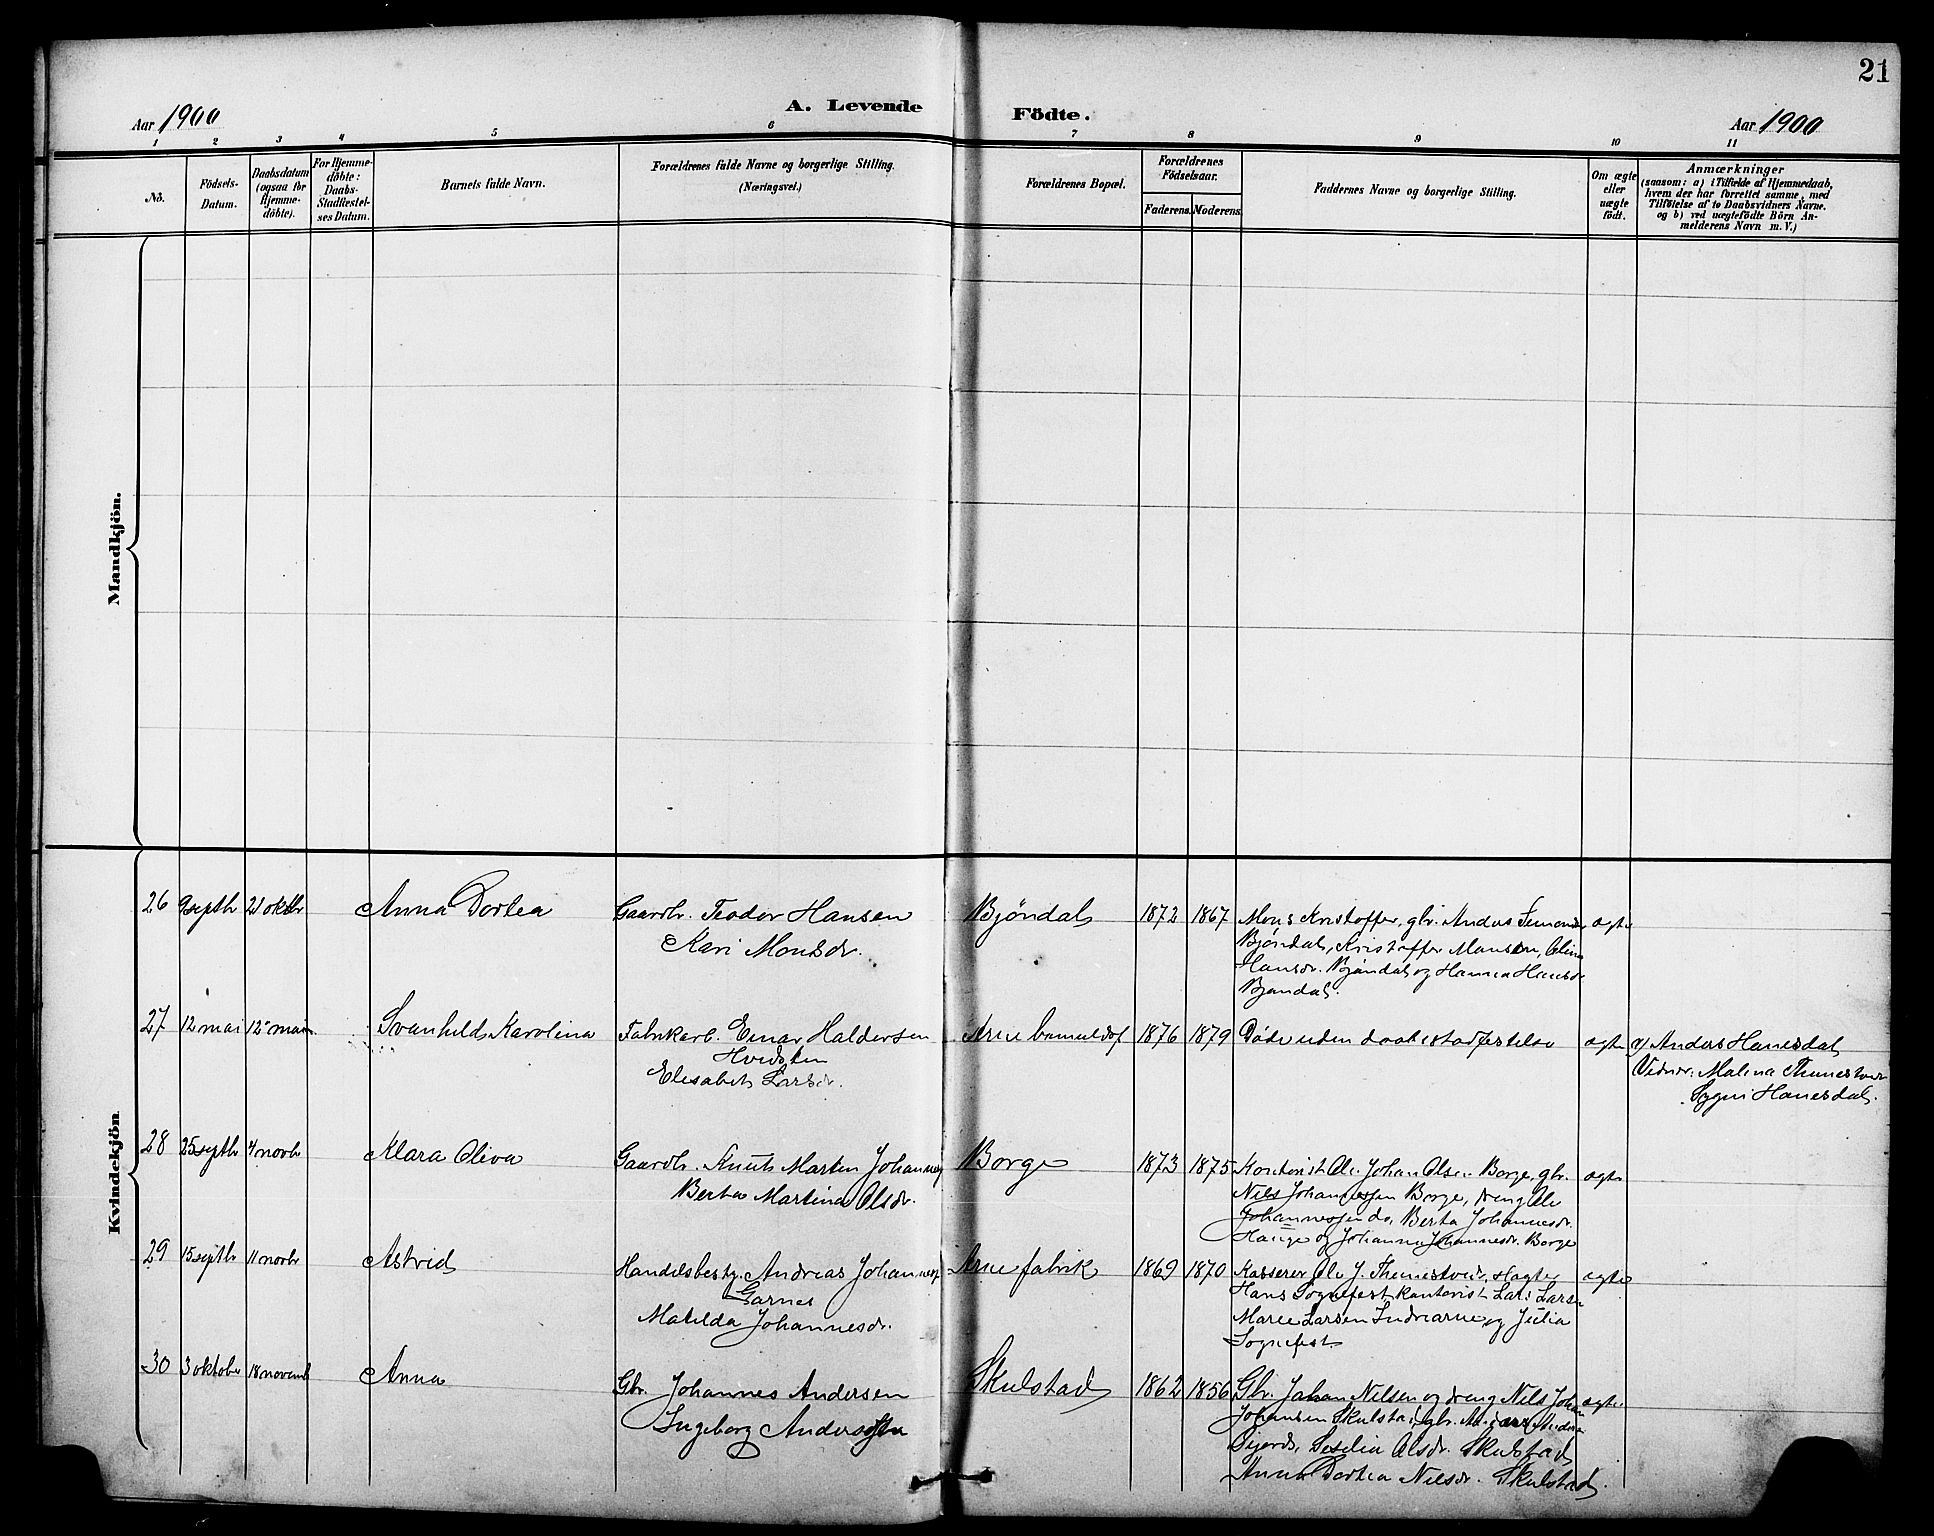 21
Aar 1900
A. Levende Födte.
Aar 1900
1 2 3 4 5 6 7 8 9 10 11
No.
Födsels-
Datum.
Daabsdatum
(ogsaa for
Hjemme-
döbte).
For Hjemme-
döbte:
Daabs-
Stadfæstel-
ses Datum.
Barnets fulde Navn.
Forældrenes fulde Navne og borgerlige Stilling.
(Næringsvei.)
Forældrenes Bopæl.
Forældrenes
Födselsaar.
Faderens. Moderens.
Faddernes Navne og borgerlige Stilling.
Om ægte
eller
uægte
födt.
Anmærkninger
(saasom: a) i Tilfælde af Hjemmedaab,
hvem der har forrettet samme, med
Tilföielse af to Daabsvidners Navne.
og b) ved uægtefödte Börn An-
melderens Navn m. V.)
Mandkjön.
Kvindekjön
26 9 septbr 21 oktbr Anna Dortea
Gaardbr. Teodor Hansen
Kari Monsdr.
Bjöndal 1872 1867
Mons Kristoffer, gbr. Anders
Bjöndal, Kristoffer Monsen, Olina
Hansdr. Bjöndal og Hanna Hansdr
Bjöndal.
ægte
27 12 mai 12 mai Svanhild Karolina
Fabrikarb. Einar Haldorsen
Elisabet Larsdr.
Arne 1876 1879
Döde uden daabsstadfestelse
ægte
v/ Anders Hanesdal
Vidner: Malina
Hanesdal.
28 25 septbr 4 novbr Klara Oliva
Gaardbr. Knut Martin Johannes
Berta Martina Olsdr.
Borge 1873 1875
Kontorist Ole Johan Olsen Borge, gbr.
Nils Johannessen Borge, dreng Ole
Johannessen do, Berta Johannesdr.
Hauge og Johanna Johannesdr. Borge
ægte
29 15 septbr 11 novbr Astrid
Handelsbesty. Andreas Johannes
Garnes
Matilda Johannesdr.
Arne fabrik 1869 1870
Kasserer Ole J. Tunestveit,
Hans Sognefest kontorist Lars Larsen
Marie Larsen Indrearne og Julia
Sognefest
ægte
30 3 oktober 18 novemb Anna
Gbr. Johannes Andersen
Ingeborg Andersdtr
Skulstad 1862 1856
Gbr. Johan Nilsen og dreng Nils Johan
Johansen Skulstad, gbr.
Seselia Olsdr. Skulstad
Anna Dortea Nilsdr. Skulstad.
ægte